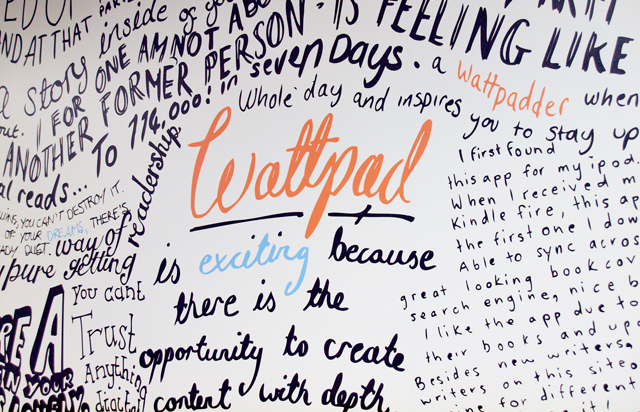 AND AT THAT
a story inside of
I FOR ONE AM NOT
ANOTHER FORMER PERSON
IS FEELING LIKE
TO 774,000! in seven Days. a wattpadder when
out.
al reads...
readership.
Whole day and inspires
you to stay up
Wattpad
is exciting because
there is the
opportunity to create
content with depth
YOU CAN'T DESTROY IT.
OF YOUR DREAMS, THERE'S
DUST.
way of
pure getting
you can't
Trust
Anything
digital
I first found
this app for my ipod
When I received m
Kindle fire, this ap
the first one I dow
Able to sync acros
great looking book cov
search engine, nice b
I like the app due to
their books and up
Besides new writers
writers on this site
for different
it!
REA